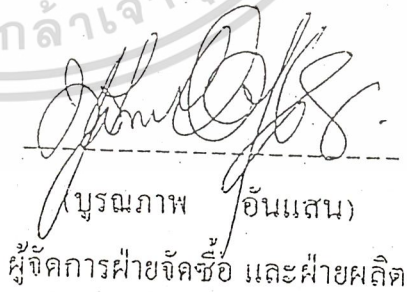 กล้าเจ้า
(บูรณภาพ อันแสน)
ผู้จัดการฝ่ายจัดซื้อ และฝ่ายผลิต